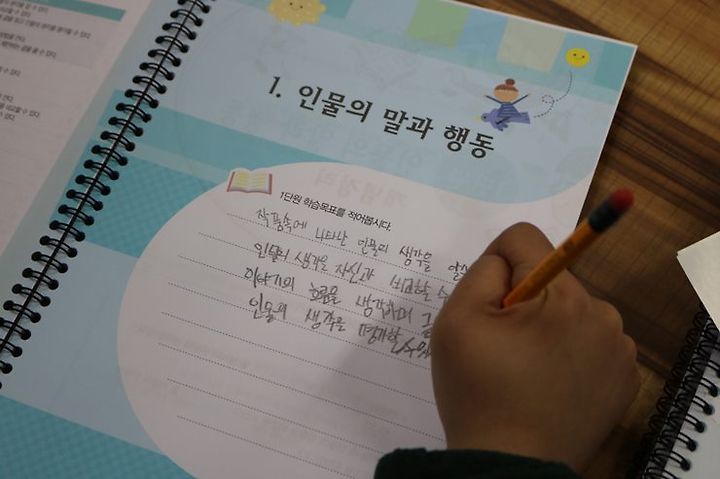 1. 인물의 말과 행동
1단원 학습목표를 적어봅시다.
작품속에 나타난 인물의 생각을
인물의 생각을 자신과 비교할 수
이야기의 흐름을 생각하며 글
인물의 생각을 평가할 수 있